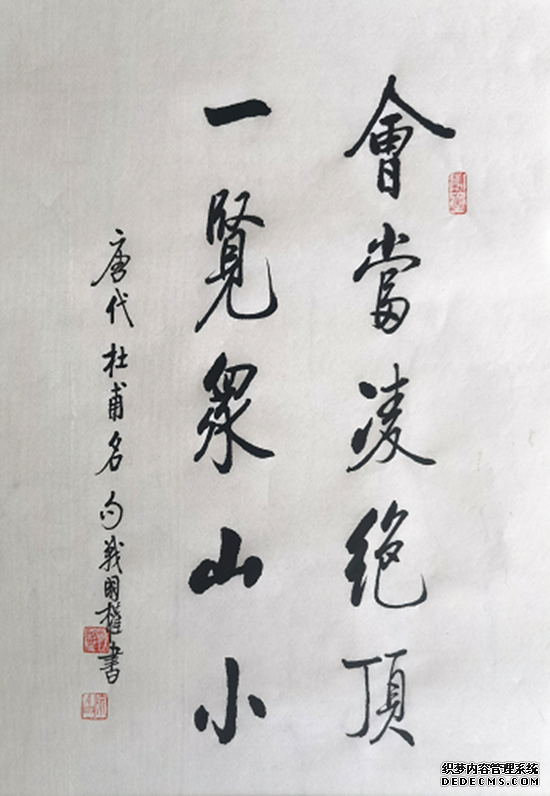 會當凌絕頂
一覽眾山小
唐代杜甫名句戴國權書
织梦内容管理系统
DEDECMS.COM